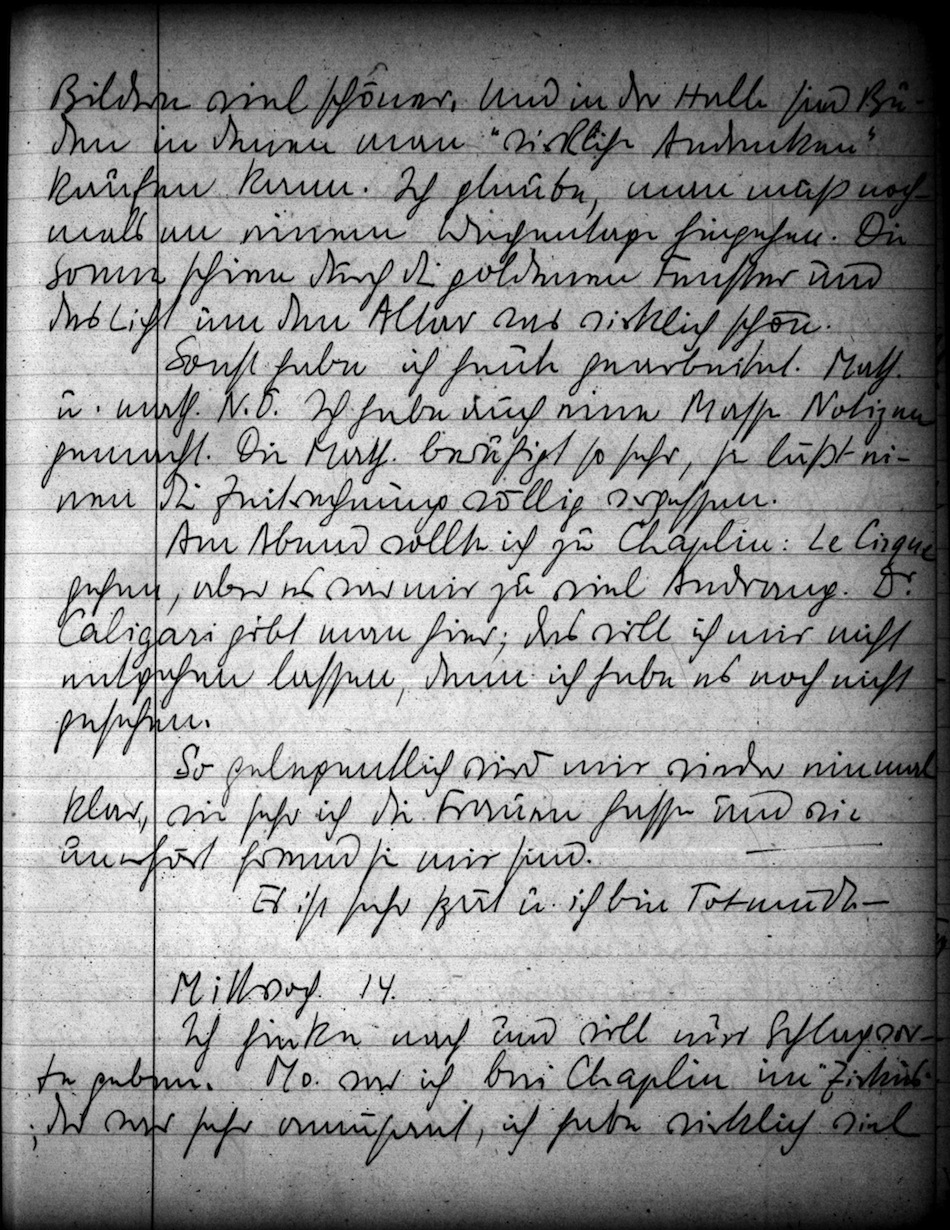 Bildern viel schöner. Und in der Halle sind Bu-
den in denen man "wirkliche Andenken"
kaufen kann. Ich glaube, man muß noch-
mals an einem Wochentage hingehen. Die
Sonne schien durch die goldenen Fenster und
das Licht um den Altar war wirklich schön.
Sonst habe ich heute gearbeitet. Math.
u. math. N.Ö. Ich habe auch eine Masse Notizen
gemacht. Die Math. beruhigt so sehr, sie läßt ei-
nen die Zeitrechnung völlig vergessen.
Am Abend wollte ich zu Chaplin: Le Cirque
gehen, aber es war mir zu viel Andrang. Dr.
Caligari gibt man hier; das will ich mir nicht
entgehen lassen, denn ich habe es noch nicht
gesehen.
So gelegentlich wird mir wieder einmal
klar, wie sehr ich die Frauen hasse und wie
unerhört fremd sie mir sind.
Es ist sehr spät u. ich bin Totmüde—
Mittwoch. 14.
Ich hinke nach und will nur Schlagwor-
te geben. Mo. war ich bei Chaplin im "Zirkus"
; der war sehr amüsant, ich habe wirklich viel